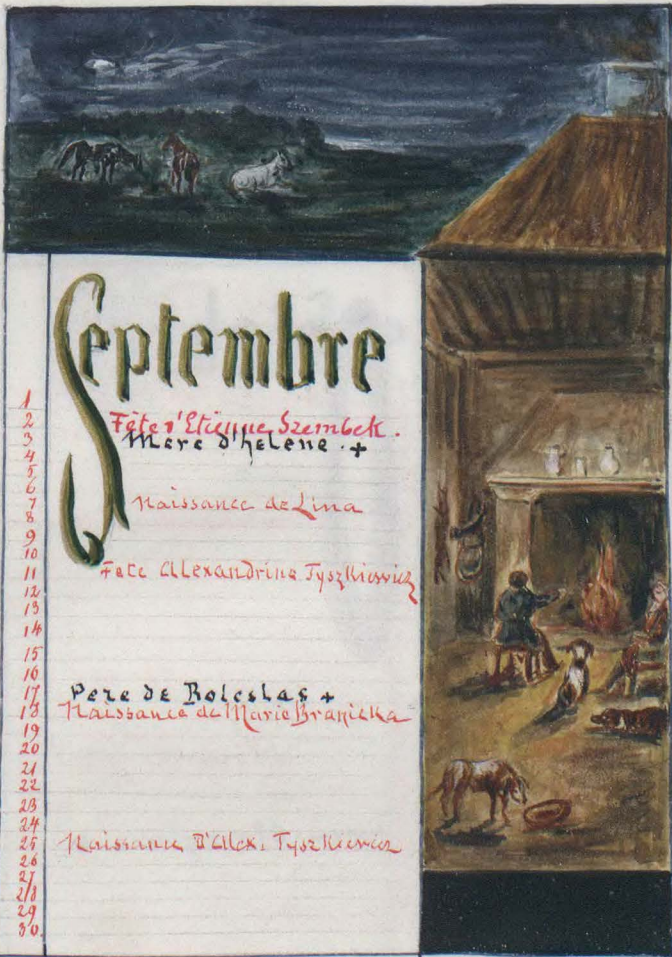 Septembre
1
2 Fête d'Etienne Szembek.
3 Mere d'helene. +
4
5
6
7 Naissance de Lina
8
9
10
11 Fete Alexandrine Tyszkiewicz
12
13
14
15
16
17 Pere de Boleslas +
18 Naissance de Marie Branicka
19
20
21
22
23
24
25 Naissance D'Alex. Tyszkiewicz
26
27
28
29
30